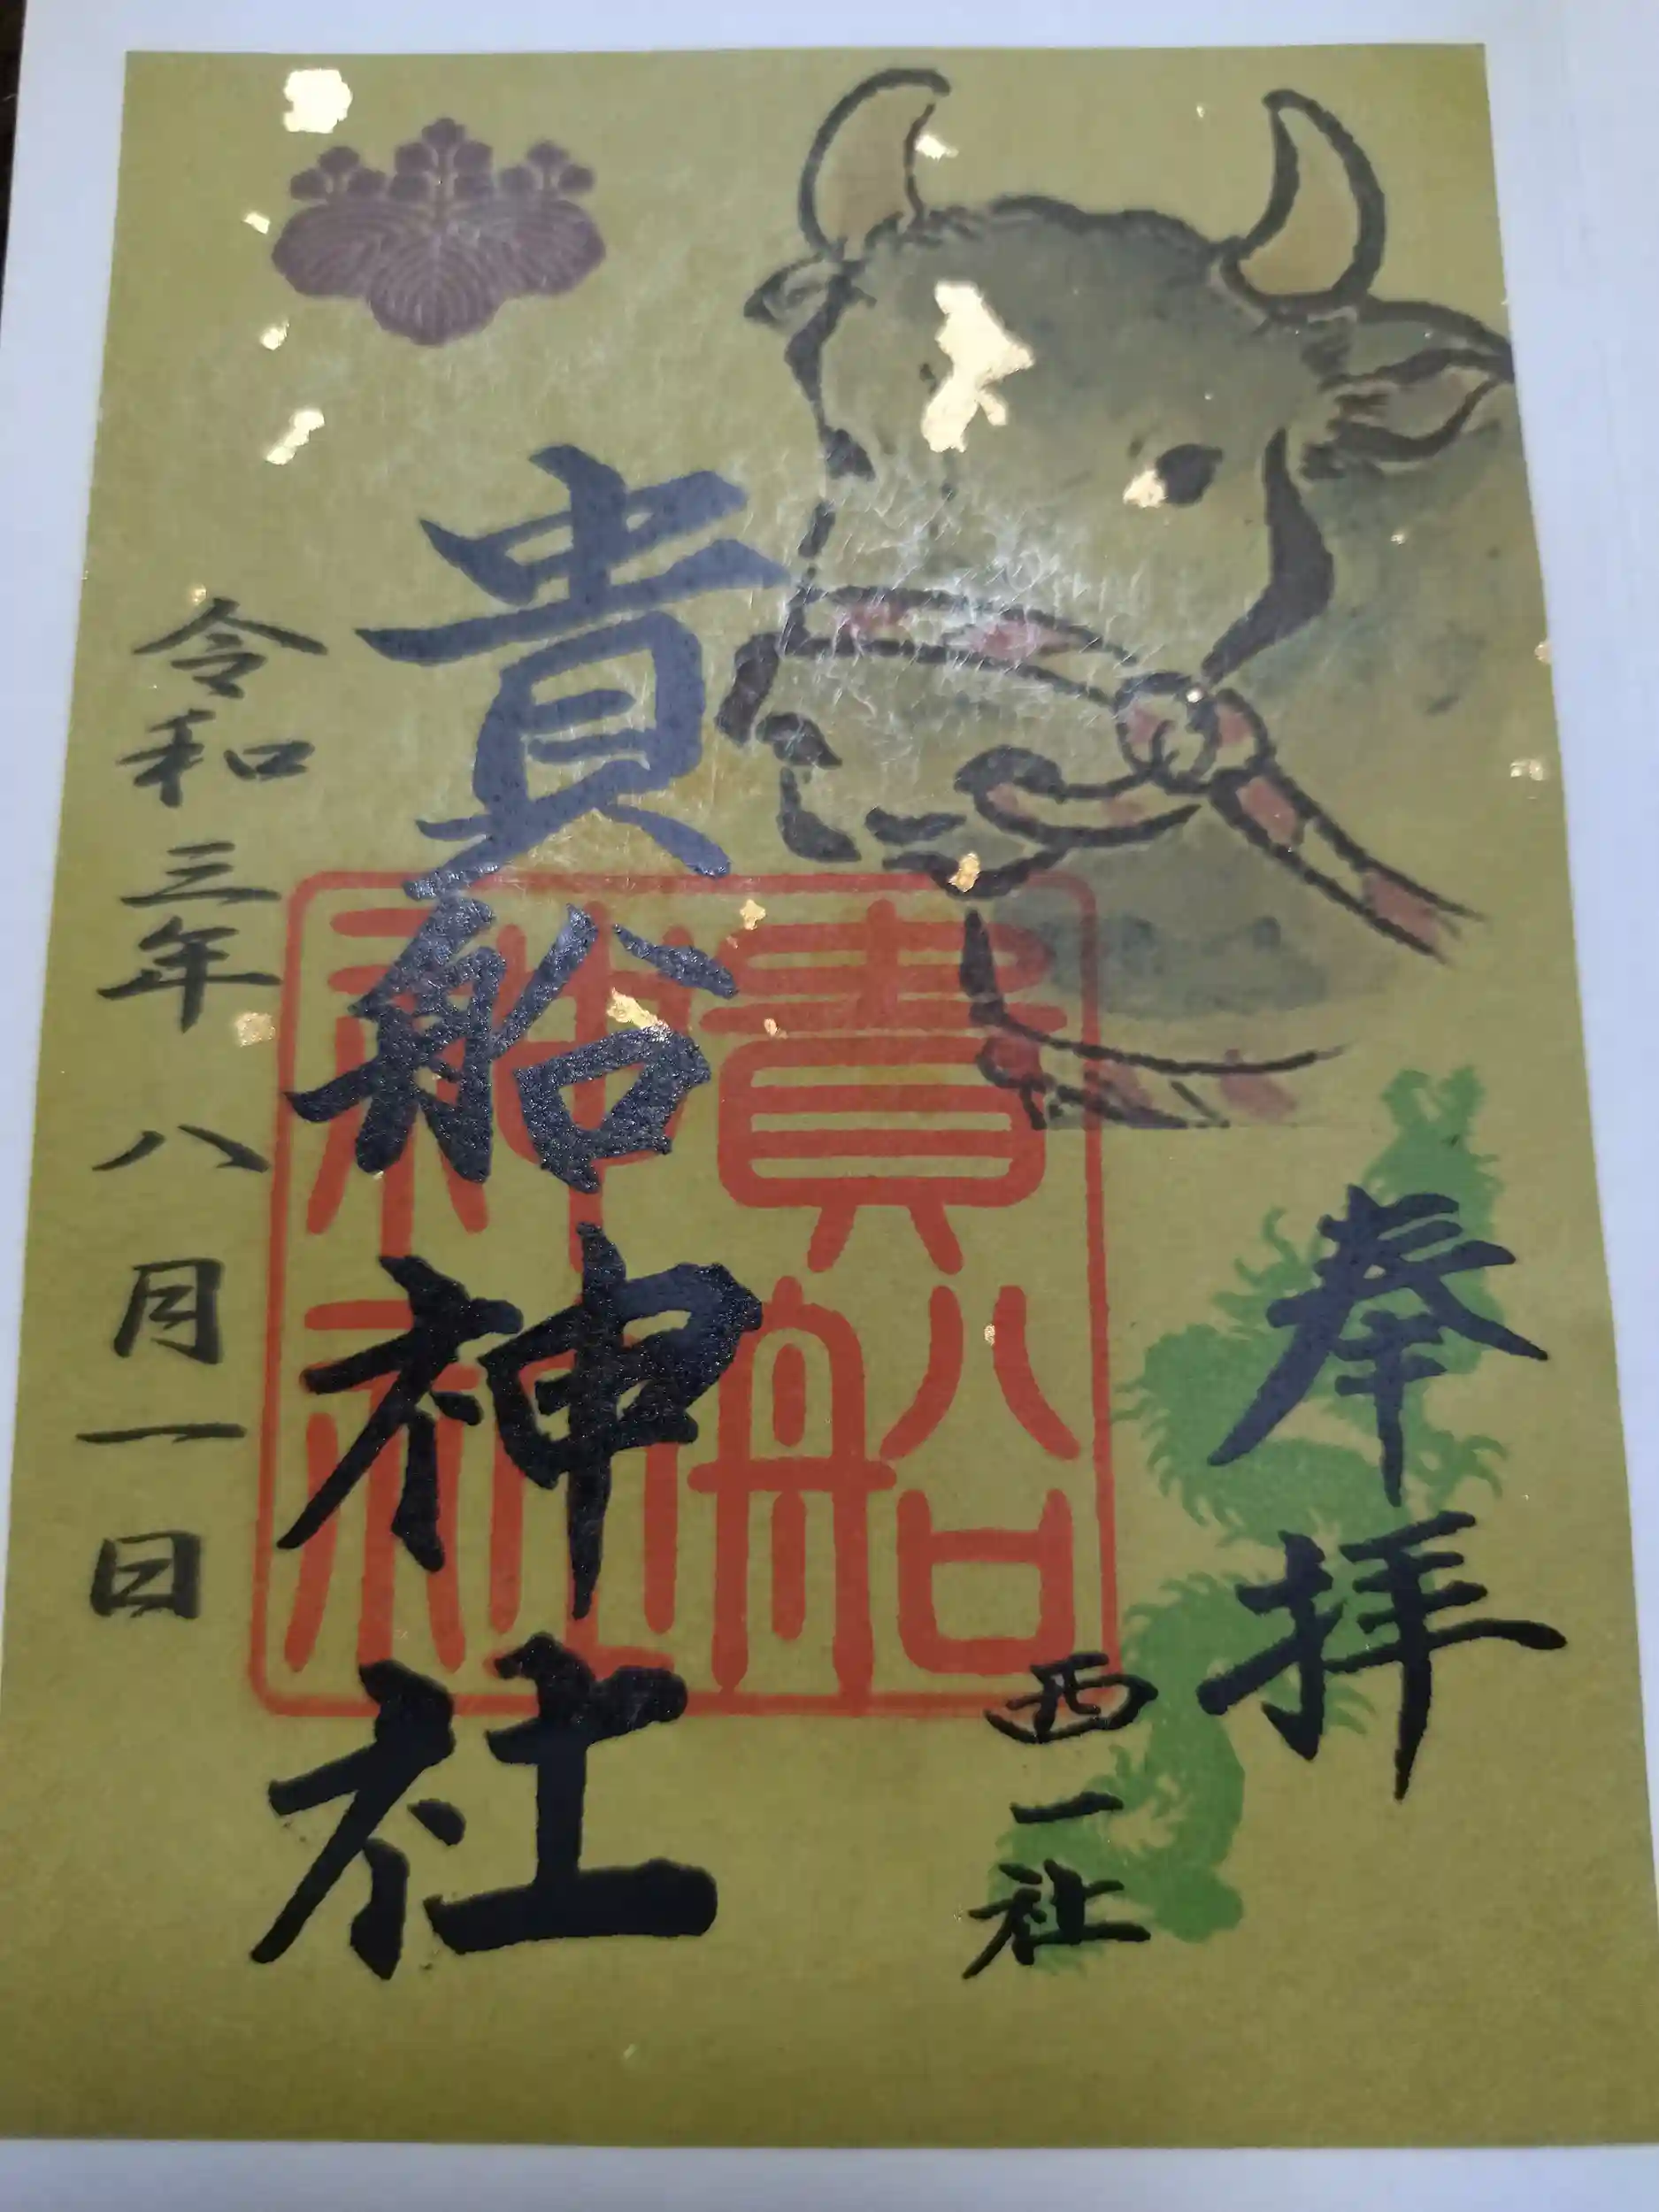 奉拝
西一社
貴船神社
貴船
神社
令和三年八月一日